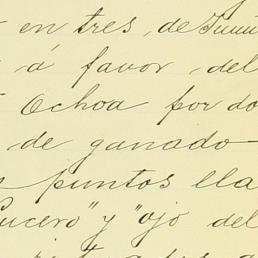 en tres, de
á favor, del
Ochoa por do
de ganado
puntos lla
ucero" y "ojo del